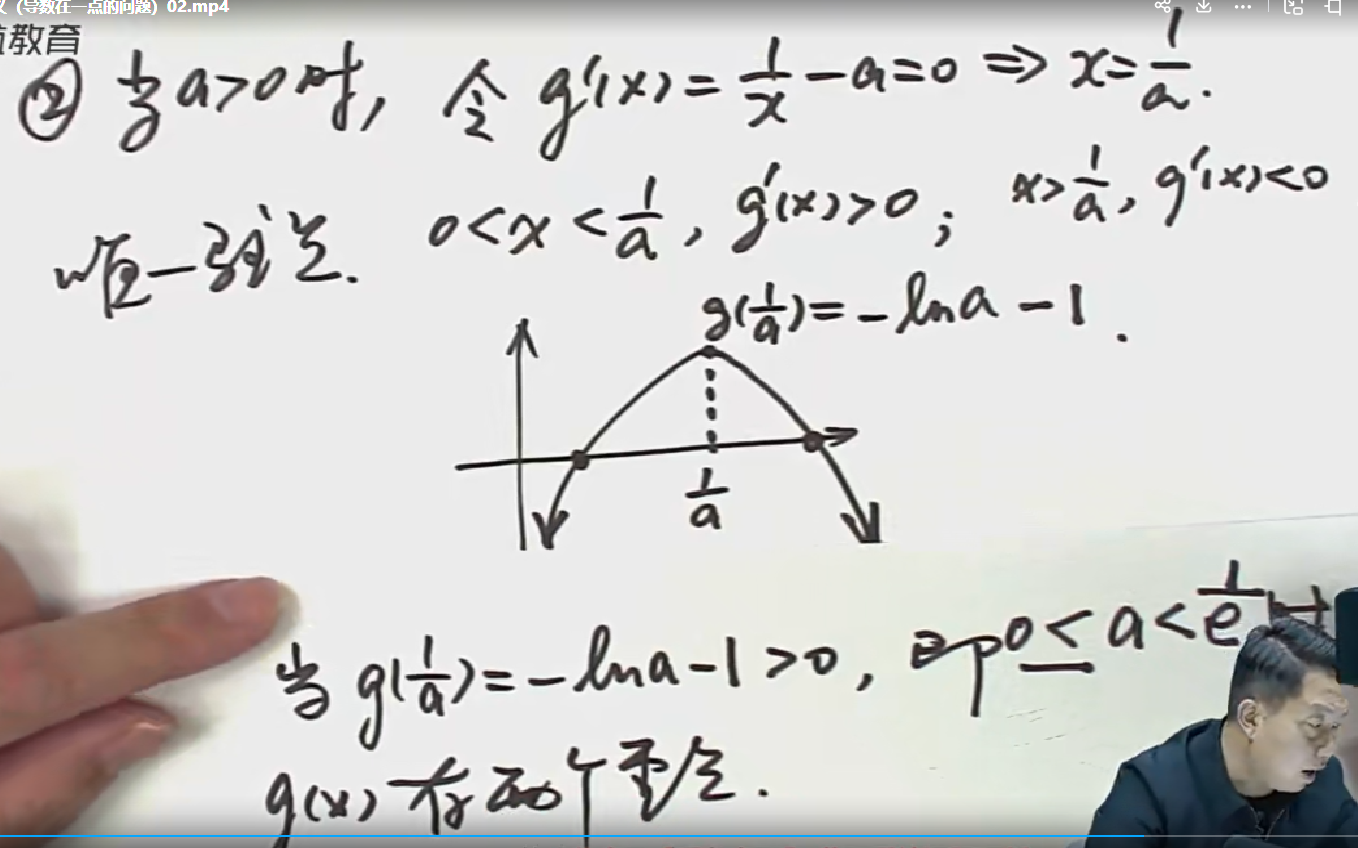 义（导数在一点的问题）02.mp4
航教育
② 当a>0时, 令 g'(x)=1/x-a=0 ⇒ x=1/a.
唯一驻点. 0<x<1/a, g'(x)>0; x>1/a, g'(x)<0
g(1/a)=-lna-1.
1/a
当 g(1/a)=-lna-1>0, 即0<a<1/e时
g(x)有两个零点.